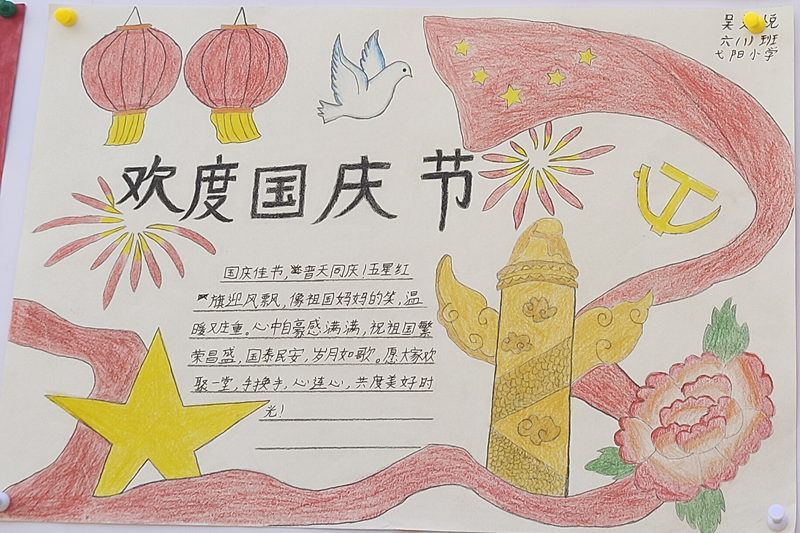 吴 悦
六(1)班
弋阳小学
欢度国庆节
国庆佳节,普天同庆!五星红
旗迎风飘,像祖国妈妈的笑,温
暖又庄重。心中自豪感满满,祝祖国繁
荣昌盛,国泰民安,岁月如歌。愿大家欢
聚一堂,手挽手,心连心,共度美好时
光!